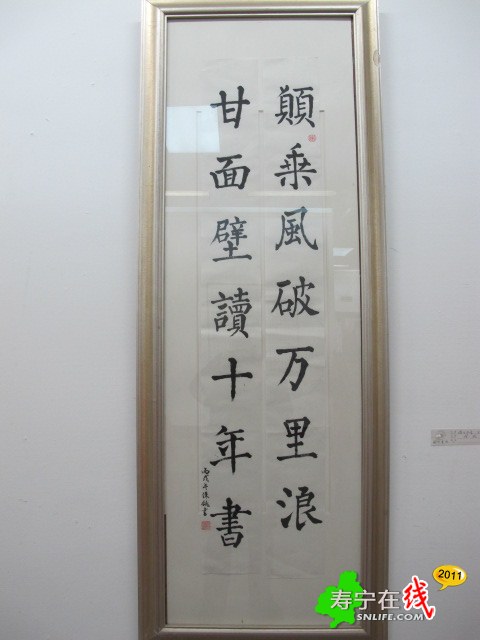 願乘風破万里浪
甘面壁讀十年書
丙戌年
2011
寿宁在线
SNLIFE.COM